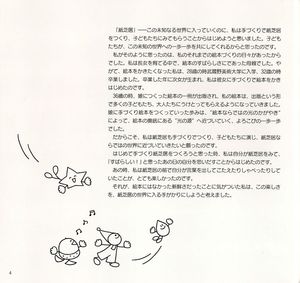 「紙芝居」——この未知なる世界に入っていくのに、私は手づくりで紙芝居
をつくり、子どもたちにみてもらうことからはじめようと思いました。子ども
たちが、この未知の世界への一歩一歩を共にしてくれるからと思ったのです。
私がそのように思ったのは、私のそれまでの絵本づくりの日々からでした。
私は長女を育てる中で、絵本のすばらしさにあらためて気づいたのです。や
がて、絵本をかきたくなった私は、28歳の時武蔵野美術大学に入学、32歳の時
卒業しました。卒業した年に次女が生まれ、私は彼女に手づくりで絵本をかき
はじめたのです。
36歳の時、娘につくった絵本の一冊が出版され、私の絵本は、出版という形
で多くの子どもたち、大人たちにうけとってもらえるようになっていきました。
娘に手づくり絵本をつくっていった歩みは、"絵本ならではの光のかがやき"
によって、絵本の奥底にある"光の源"へ近づいていく、よろこびの一歩一歩
でした。
だからこそ、私は紙芝居も手づくりでつくり、子どもたちに演じ、紙芝居な
らではの世界に近づいていきたいと願ったのです。
はじめて手づくり紙芝居をつくろうと思った時、私は自分が紙芝居をみて、
「すばらしい！」と思ったあの日の自分を思いだすことからはじめました。
あの時、私は紙芝居の前で自分が言葉を出してこたえたりしゃべったりして
いたことが、とても楽しかったのです。
それが、絵本にはなかった新鮮さだったことに気づいた私は、この楽しさ
を、紙芝居の世界に入る手がかりにしようと考えました。
4